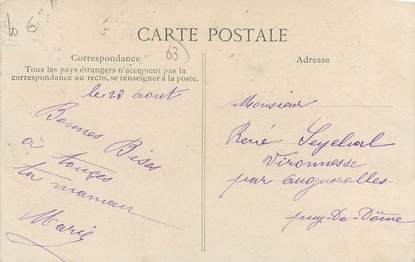 CARTE POSTALE
Correspondance
Tous les pays étrangers n'acceptent pas la
correspondance au recto, se renseigner à la poste.
Adresse
63
le 28 août
Bonnes Bises
à
ta maman
Marie
Monsieur
René
par
puy-De-Dôme